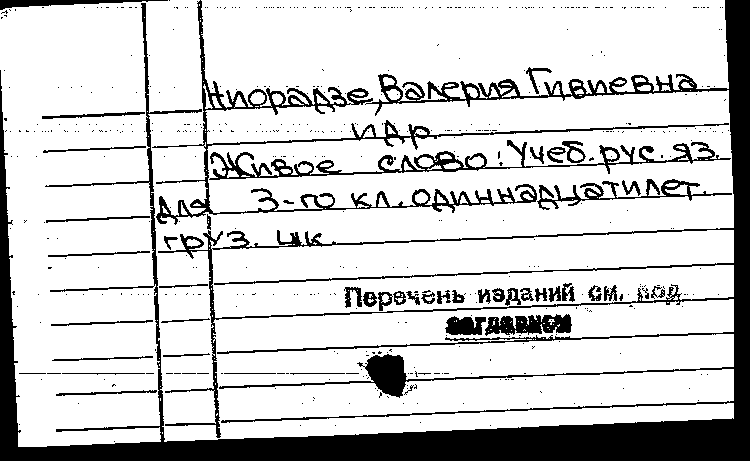 Ниорадзе, Валерия Гивиевна
и др.
Живое слово: Учеб. рус. яз.
для 3-го кл. одиннадцатилет.
груз. шк.
Перечень изданий см. под
заглавием